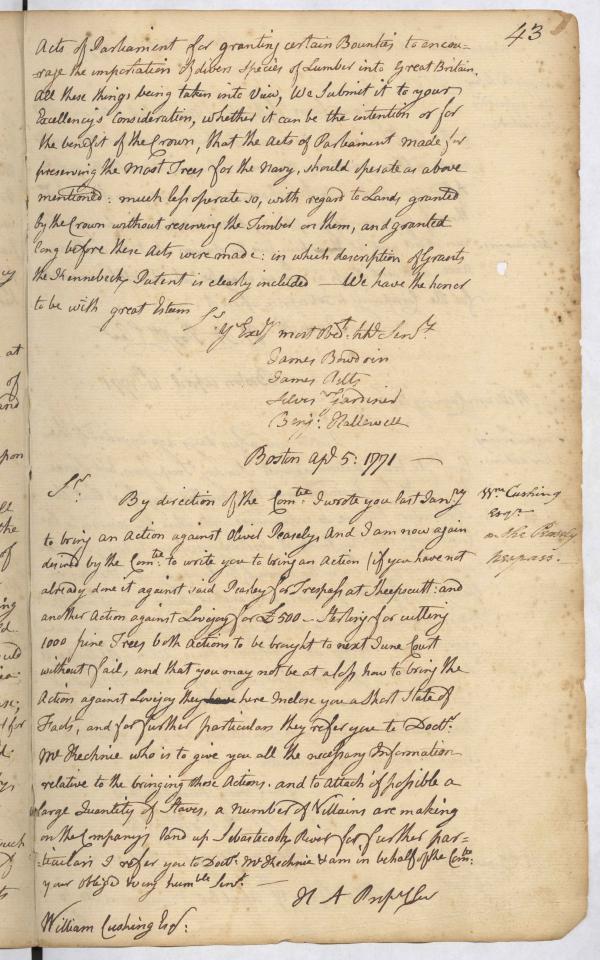 43
Acts of Parliament for granting certain Bounties to encou=
=rage the importation of divers species of Lumber into Great Britain.
All these things being taken into View, We Submit it to your
Excellency's Consideration, whether it can be the intention or for
the benefit of the Crown, that the Acts of Parliament made for
preserving the Mast Trees for the Navy, should operate as above
mentioned: much less operate so, with regard to Lands granted
by the Crown without reserving the Timber on them, and granted
long before these Acts were made: in which description of Grants
the Kennebeck Patent is clearly included — We have the honor
to be with great Esteem Sr
Yr Excys most Obedt. hble Servts.
James Bowdoin
James Pitts
Silvr Gardiner
Benjn. Hallowell
Boston Apl 5: 1771 —
Sr.
By direction of the Comtee. I wrote you last Janry
to bring an Action against Oliver Peasely, And I am now again
desired by the Comtee. to write you to bring an Action (if you have not
already done it against said Peasley for Trespass at Sheepscutt: and
another Action against Lovejoy for £500 — Sterling for cutting
1000 pine Trees both Actions to be brought to next June Court
without fail, and that you may not be at a loss how to bring the
Action against Lovejoy they have here Inclose you a Short State of
Facts, and for further particulars they refer you to Doctr.
McKechnie who is to give you all the necessary Information
relative to the bringing those Actions. and to Attach if possible a
large Quantity of Staves, a number of Villains are making
on the Companys land up Sebasteccok River for further par=
=ticulars I refer you to Doctr. McKechnie & am in behalf of the Comtee:
your oblig'd & very humble Servt. —
William Cushing Esqr:
Wm Cushing
Esqr
on the Peasely
trespass. —